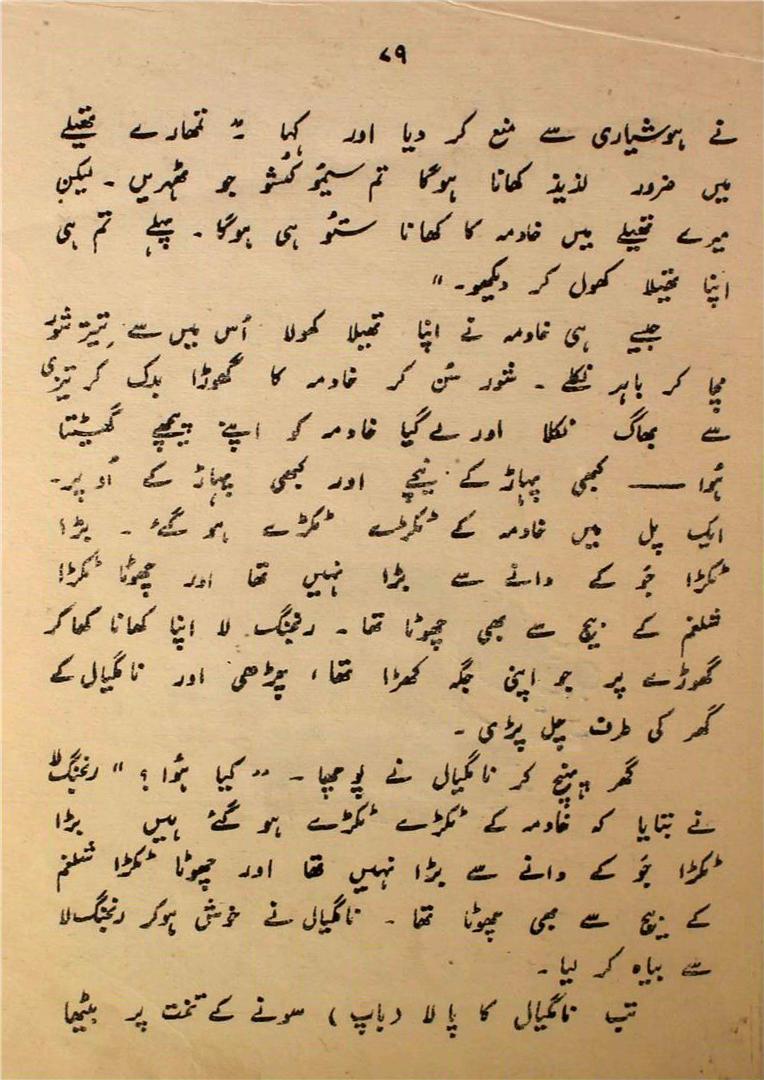 ۷۹
نے ہوشیاری سے منع کر دیا اور کہا " تمھارے تھیلے
میں ضرور لذیذ کھانا ہوگا تم سیمُو کُشو جو ٹھہریں ۔ لیکن
میرے تھیلے میں خادمہ کا کھانا ستّو ہی ہوگا ۔ پہلے تم ہی
اپنا تھیلا کھول کر دیکھو ۔ "
جیسے ہی خادمہ نے اپنا تھیلا کھولا اُس میں سے تیتر شور
مچا کر باہر نکلے ۔ شور سُن کر خادمہ کا گھوڑا بدک کر تیزی
سے بھاگ نکلا اور لے گیا خادمہ کو اپنے پیچھے گھسیٹتا
ہُوا —— کبھی پہاڑ کے نیچے اور کبھی پہاڑ کے اُوپر ۔
ایک پل میں خادمہ کے ٹکڑے ٹکڑے ہو گئے ۔ بڑا
ٹکڑا جَو کے دانے سے بڑا نہیں تھا اور چھوٹا ٹکڑا
شلغم کے بیج سے بھی چھوٹا تھا ۔ رنجنگ لا اپنا کھانا کھا کر
گھوڑے پر جو اپنی جگہ کھڑا تھا ، چڑھی اور نانگیال کے
گھر کی طرف چل پڑی ۔
گھر پہنچ کر نانگیال نے پوچھا ۔ " کیا ہُوا ؟ " رنجنگ لا
نے بتایا کہ خادمہ کے ٹکڑے ٹکڑے ہو گئے ہیں بڑا
ٹکڑا جَو کے دانے سے بڑا نہیں تھا اور چھوٹا ٹکڑا شلغم
کے بیج سے بھی چھوٹا تھا ۔ نانگیال نے خوش ہوکر رنجنگ لا
سے بیاہ کر لیا ۔
تب نانگیال کا پالا ( باپ ) سونے کے تخت پر بیٹھا